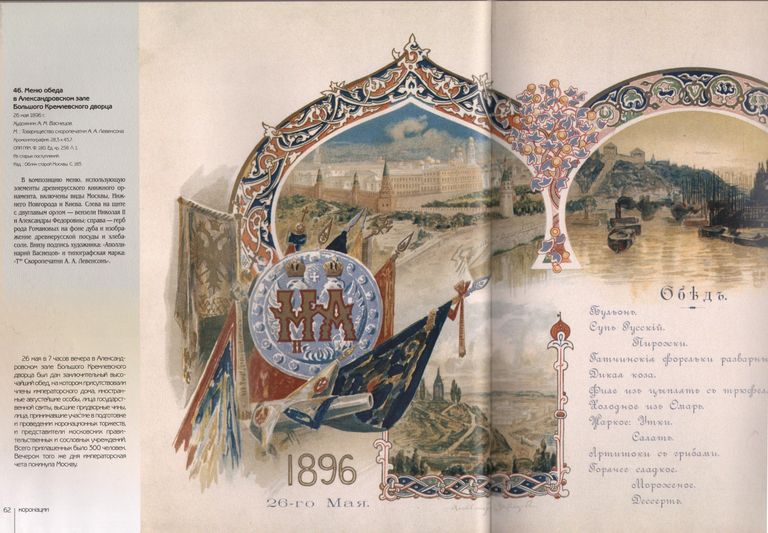 46. Меню обеда
в Александровском зале
Большого Кремлевского дворца
26 мая 1896 г.
Художник А. М. Васнецов.
М., Товарищество скоропечатни А. А. Левенсона
Хромолитография. 28,5 х 43,7.
ОПИ ГИМ. Ф. 180. Ед. хр. 258. Л. 1.
Из старых поступлений.
Изд.: Облик старой Москвы. С. 183.
В композицию меню, использующую
элементы древнерусского книжного ор-
намента, включены виды Москвы, Ниж-
него Новгорода и Киева. Слева на щите
с двуглавым орлом — вензели Николая II
и Александры Федоровны; справа — герб
рода Романовых на фоне дуба и изобра-
жение древнерусской посуды и хлеба-
соли. Внизу подпись художника: «Аполли-
нарий Васнецов» и типографская марка:
«Т-во Скоропечатни А. А. Левенсонъ».
26 мая в 7 часов вечера в Александ-
ровском зале Большого Кремлевского
дворца был дан заключительный высо-
чайший обед, на котором присутствовали
члены императорского дома, иностран-
ные августейшие особы, лица государст-
венной свиты, высшие придворные чины,
лица, принимавшие участие в подготовке
и проведении коронационных торжеств,
и представители московских прави-
тельственных и сословных учреждений.
Всего приглашенных было 500 человек.
Вечером того же дня императорская
чета покинула Москву.
62 коронации
НА
II
1896
26-го Мая.
Обѣдъ.
Бульонъ.
Супъ Русскій.
Пирожки.
Гатчинскія форельки разварны
Дикая коза.
Филе изъ цыплятъ съ трюфел
Холодное изъ Омаръ.
Жаркое: Утки.
Салатъ.
Артишоки съ грибами.
Горячее сладкое.
Мороженое.
Дессертъ.